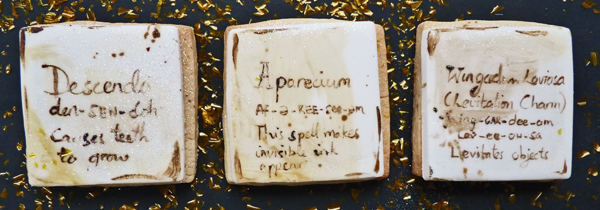 Descendo
deh-SEN-doh
Causes teeth
to grow
Aparecium
AP-a-REE-see-um
This spell makes
invisible ink
appear
Wingardium Leviosa
(Levitation Charm)
wing-GAR-dee-um
Lev-ee-OH-sa
Levitates objects